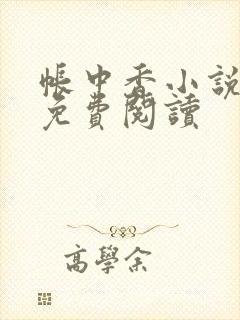 帳中香小說
免費閱讀
高學余